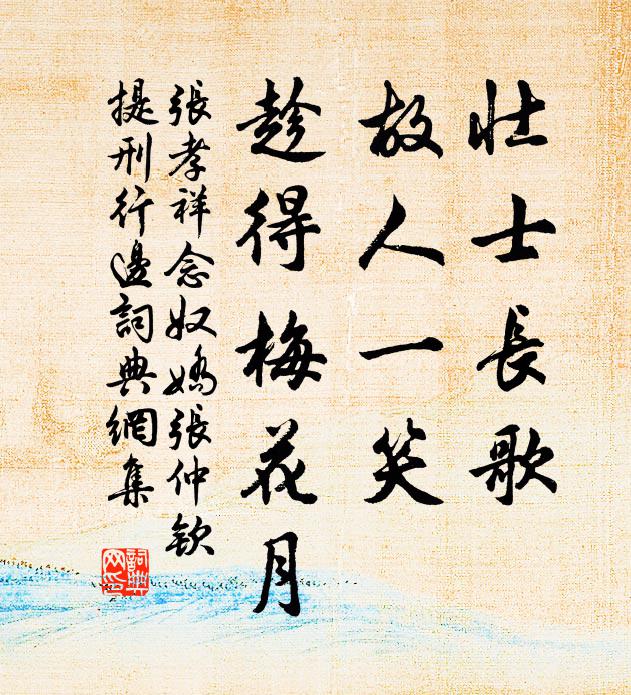 壮士長歌
故人一笑
趁得梅花月
張孝祥念奴嬌張仲欽
提刑行邊詞典網集
詞典
网印